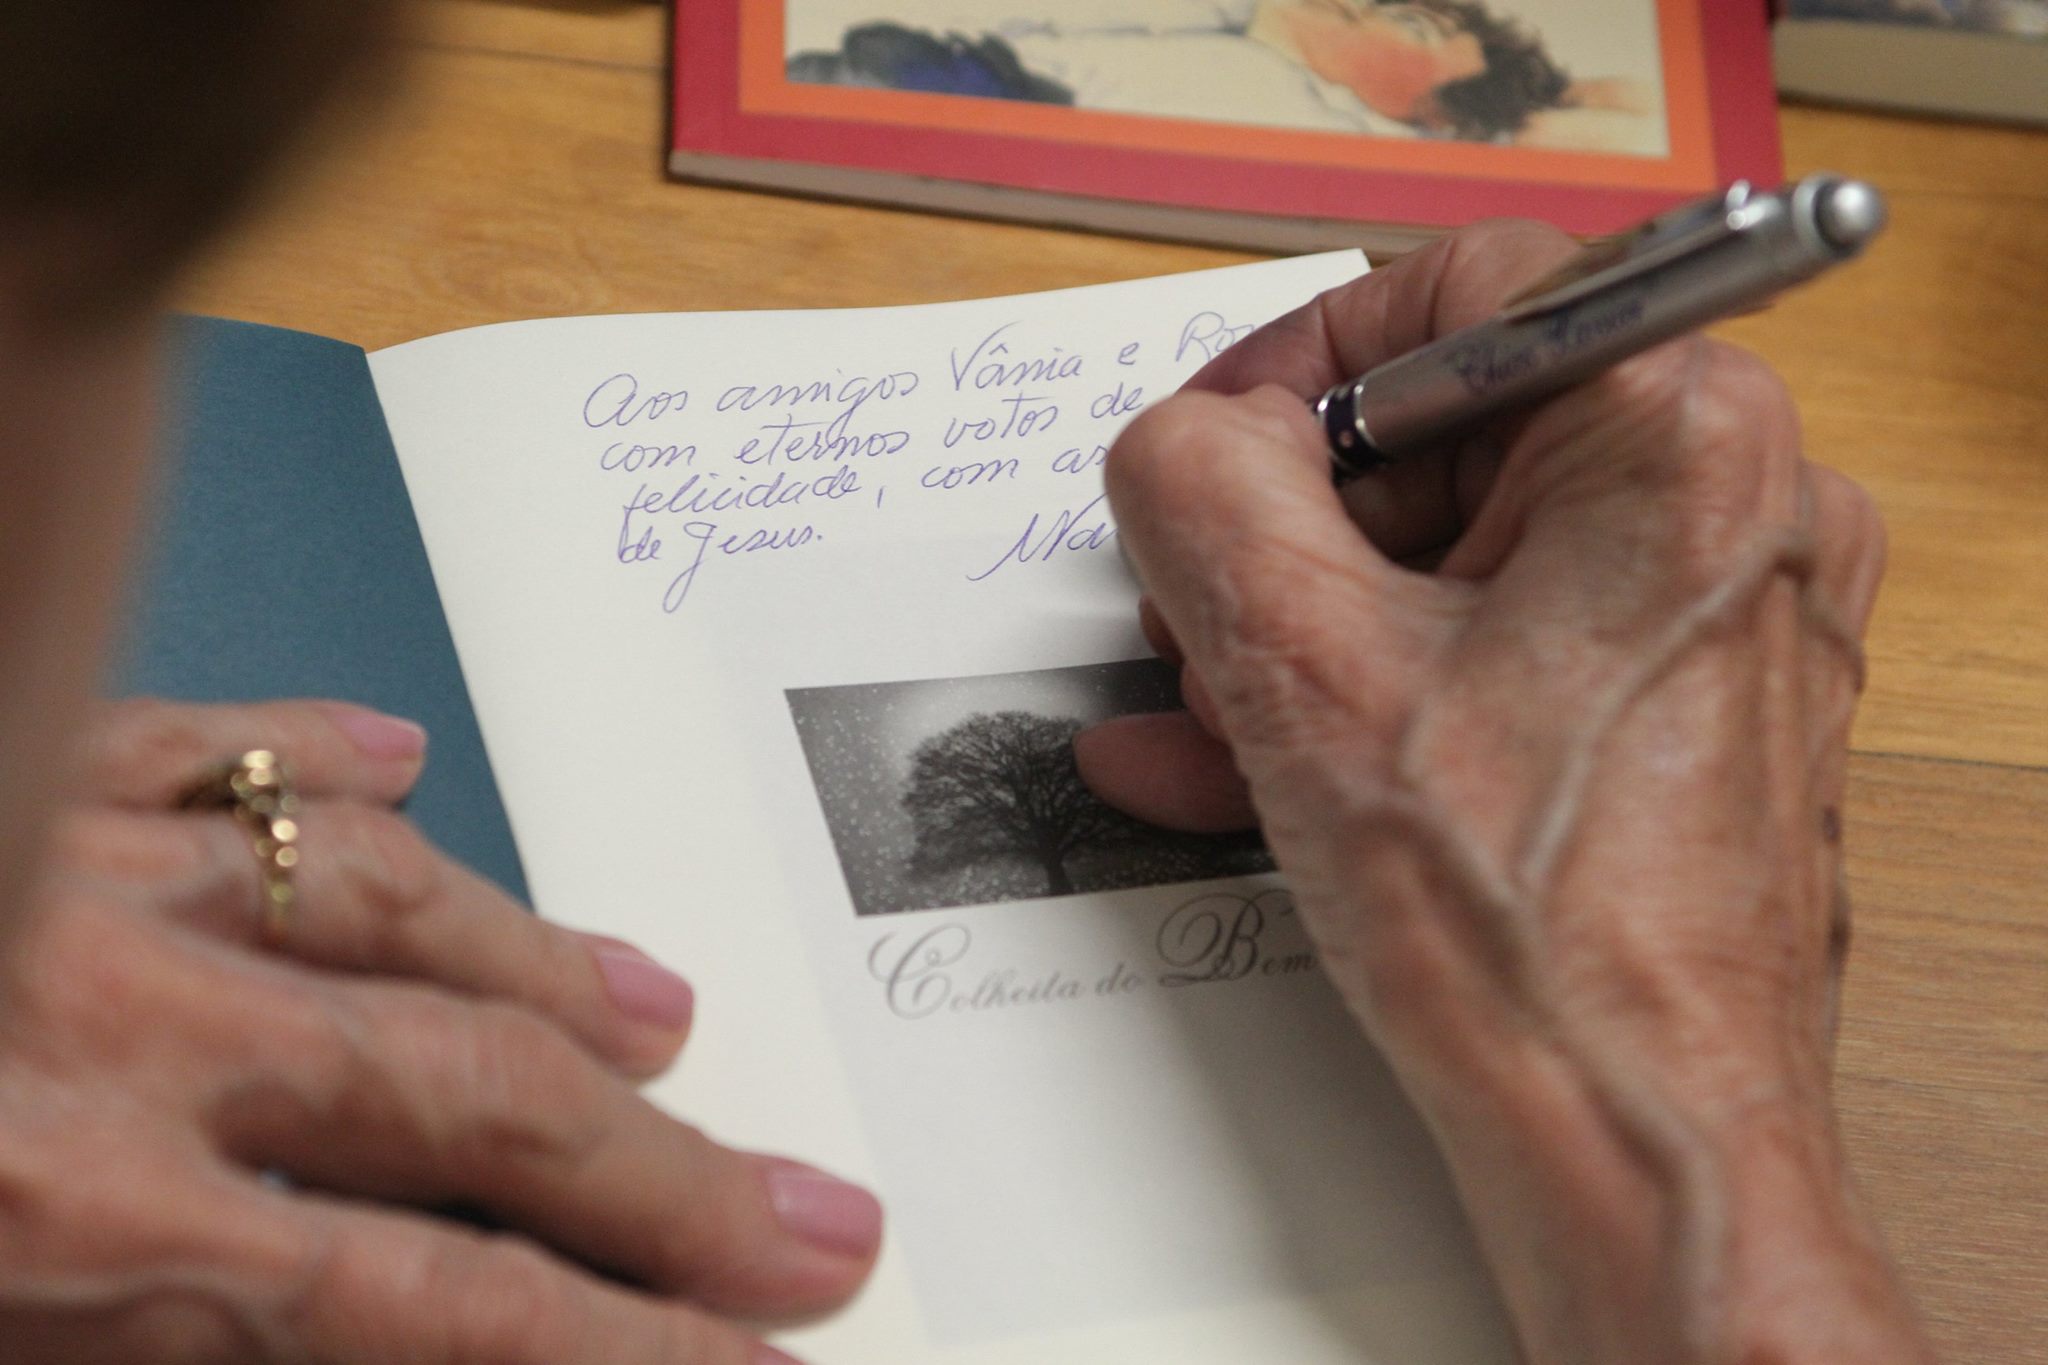 Aos amigos Vânia e Ro
com eternos votos de
felicidade, com as
de Jesus.
Na
Colheita do Bem